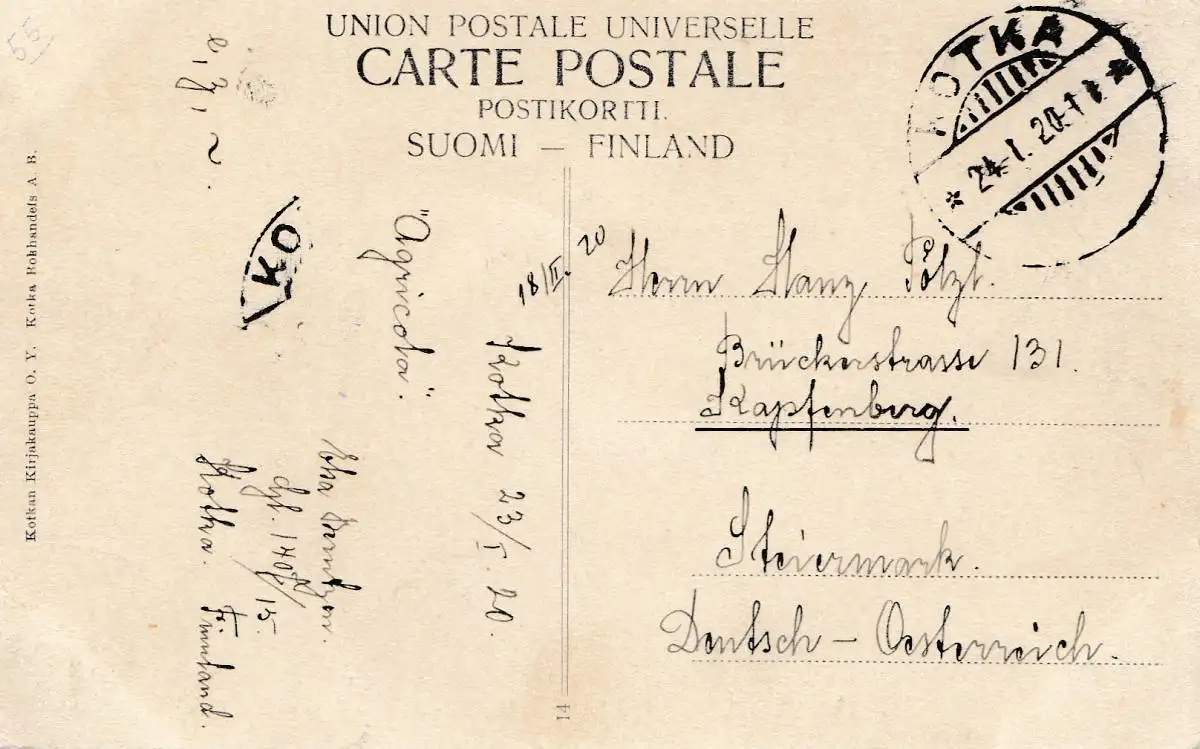 UNION POSTALE UNIVERSELLE
CARTE POSTALE
POSTIKORTTI.
SUOMI — FINLAND
KOTKA
* 24.I.20.
KO
55
Kotkan Kirjakauppa O. Y. Kotka Bokhandels A. B.
"Agricola".
18/II. 20
Kotka 23/I. 20.
Elsa
15.
Kotka. Finnland.
Herrn Franz Pölzl.
Brückerstrasse 131.
Kapfenberg.
Steiermark.
Deutsch – Oesterreich.
14